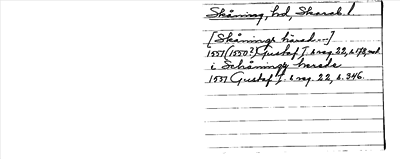 Skåning, hd, Skarab. l.
[Skånings härad...]
1557 (1550?) Gustaf I s reg. 22, s. 172, not.
i Schåningz herede
1557 Gustaf I. s reg. 22, s. 346.